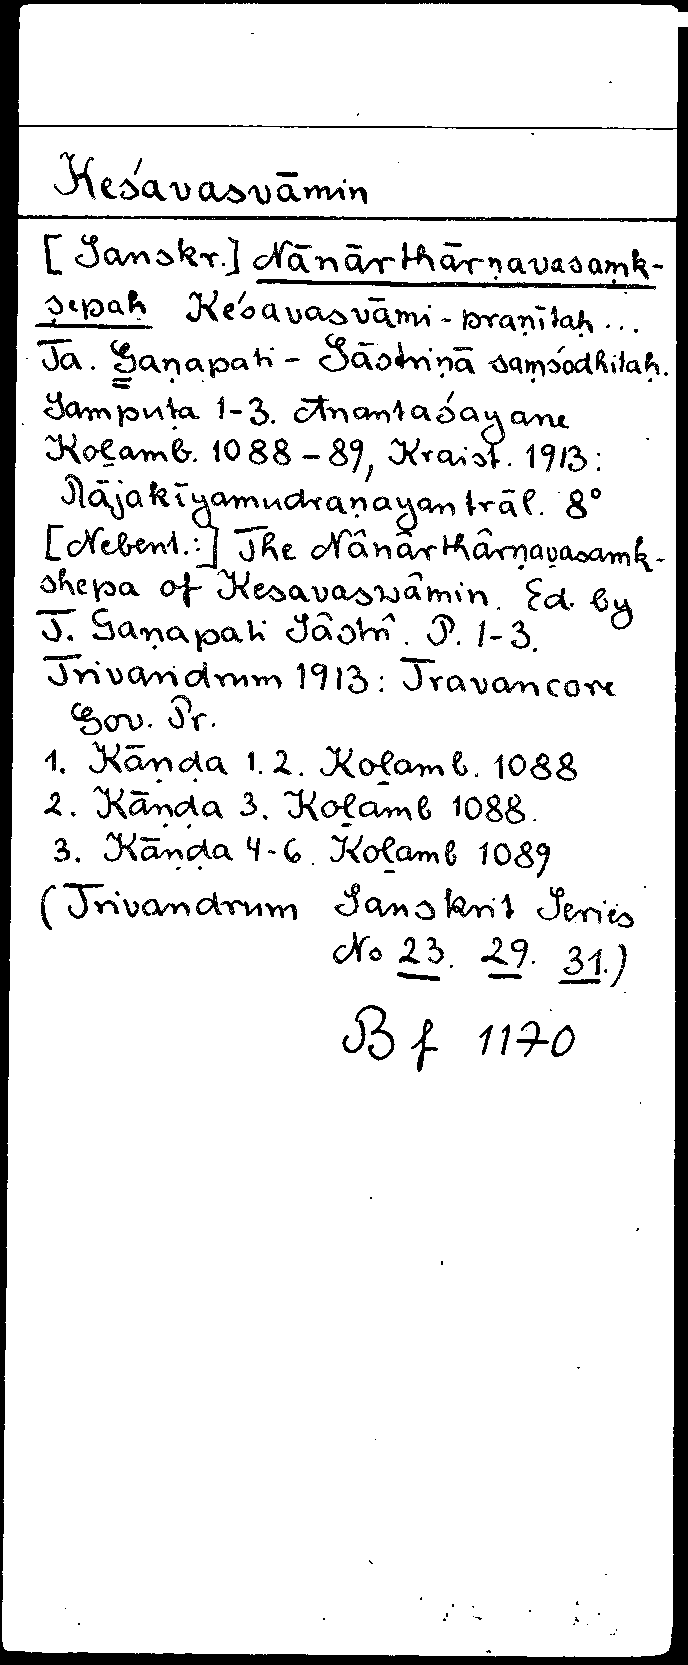 Keśavasvāmin
[Sanskr.] Nānārthārṇavasaṃk-
ṣepaḥ Keśavasvāmi-praṇītaḥ ...
Ta. Gaṇapati-Śāstriṇā saṃśodhitaḥ.
Sampuṭa 1-3. Anantaśayane
Koḻamb. 1088-89, Kraist. 1913:
Rājakīyamudraṇayanträl. 8°
[Nebent.:] The Nânârthârṇavasamk-
shepa of Kesavaswâmin. Ed. by
T. Gaṇapati Sâstrî. P. 1-3.
Trivandrum 1913: Travancore
Gov. Pr.
1. Kāṇḍa 1.2. Koḻamb. 1088
2. Kāṇḍa 3. Koḻamb 1088.
3. Kāṇḍa 4-6. Koḻamb 1089
(Trivandrum Sanskrit Series
No 23. 29. 31.)
Bf 1170